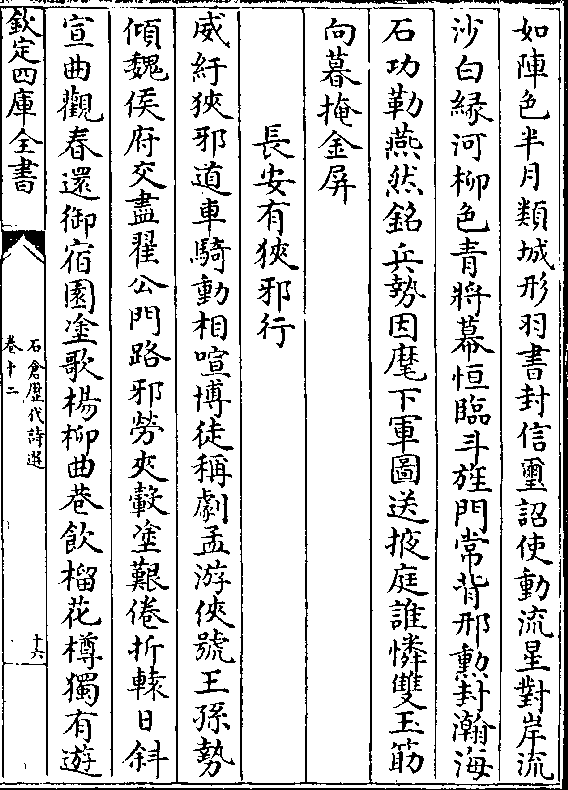 如陣色半月類城形羽書封信璽詔使動流星對岸流
沙白緣河柳色青將幕恒臨斗旌門常背邢勲封瀚海
石功勒燕然銘兵勢因麾下軍圖送掖庭誰憐雙玉筯
向暮掩金屏
長安有狹邪行
威紆狹邪道車騎動相喧博徒稱劇孟游俠號王孫勢
傾魏侯府交盡翟公門路邪勞夾轂塗艱倦折轅日斜
宣曲觀春還御宿園塗歌楊柳曲巷飲榴花樽獨有遊
欽定四庫全書
石倉歷代詩選
卷十二
十六